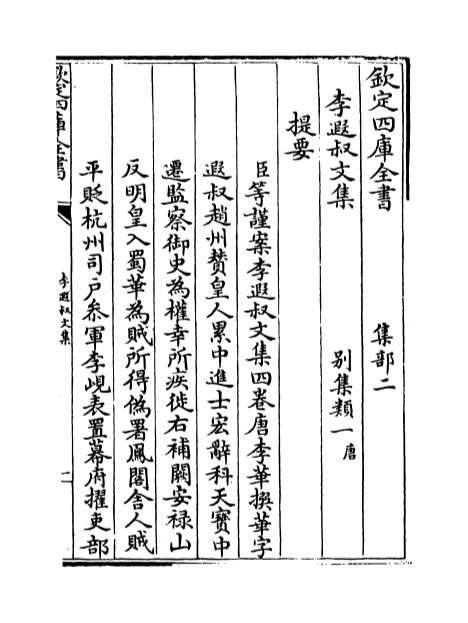 欽定四庫全書　集部二
李遐叔文集　別集類一唐
提要
臣等謹案李遐叔文集四卷唐李華撰華字
遐叔趙州贊皇人累中進士宏辭科天寳中
遷監察御史為權幸所疾徙右補闕安禄山
反明皇入蜀華為賊所得偽署鳳閣舍人賊
平貶杭州司户叅軍李峴表置幕府擢吏部
欽定四庫全書
李遐叔文集